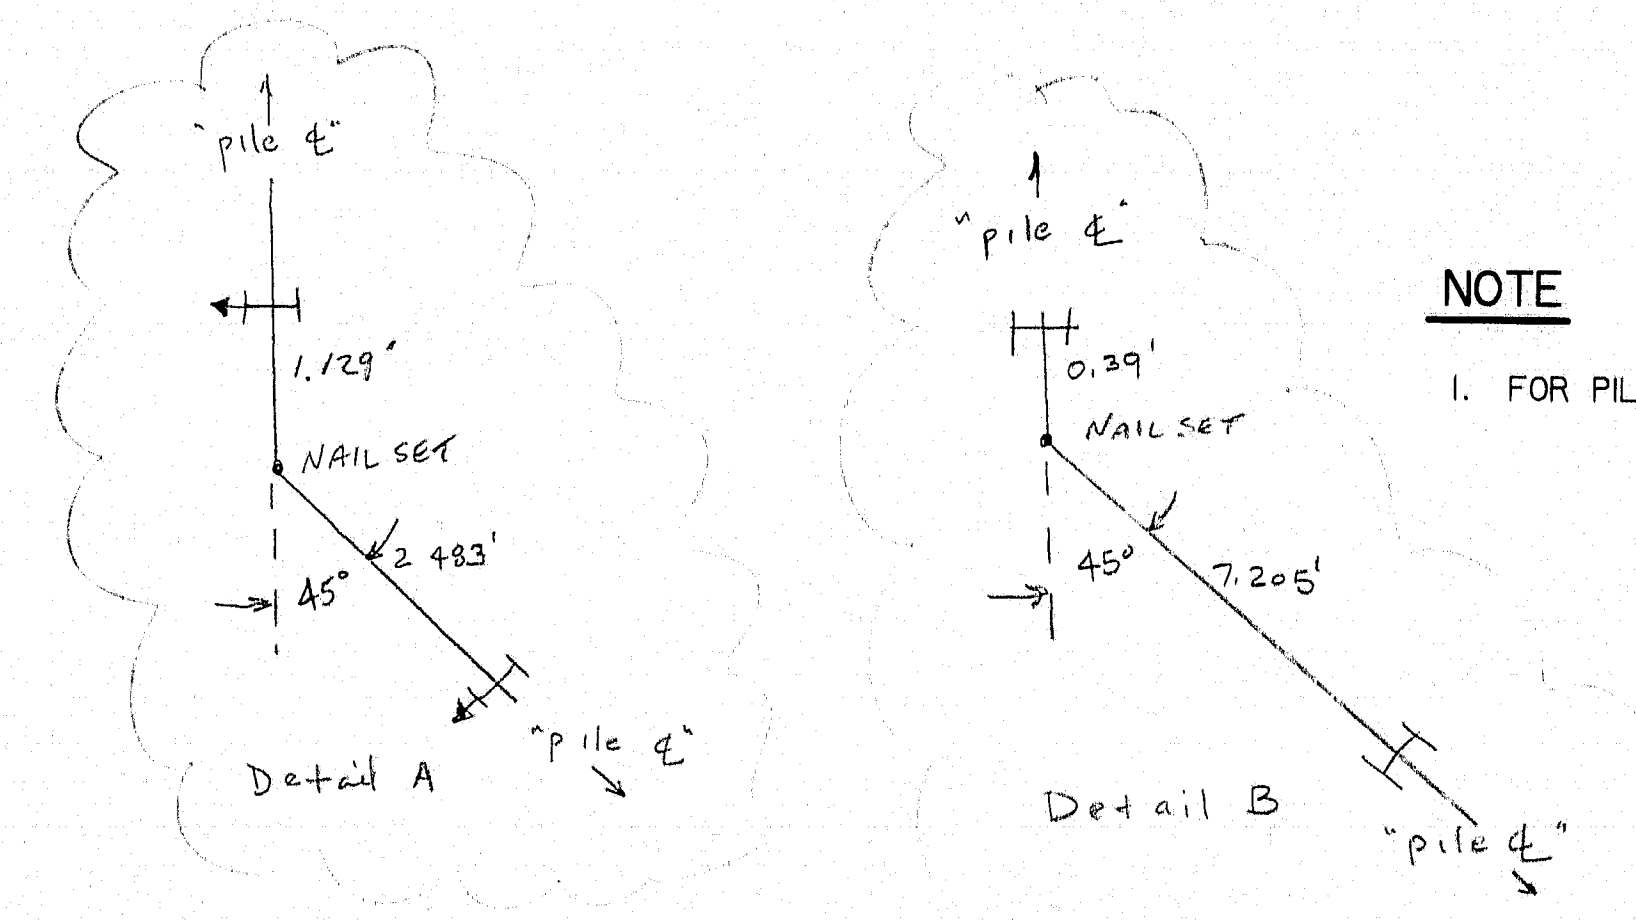 "pile ℄"
1.129'
NAIL SET
2 483'
45°
"pile ℄"
Detail A
"pile ℄"
0.39'
NAIL SET
45°
7.205'
"pile ℄"
Detail B
NOTE
1. FOR PIL